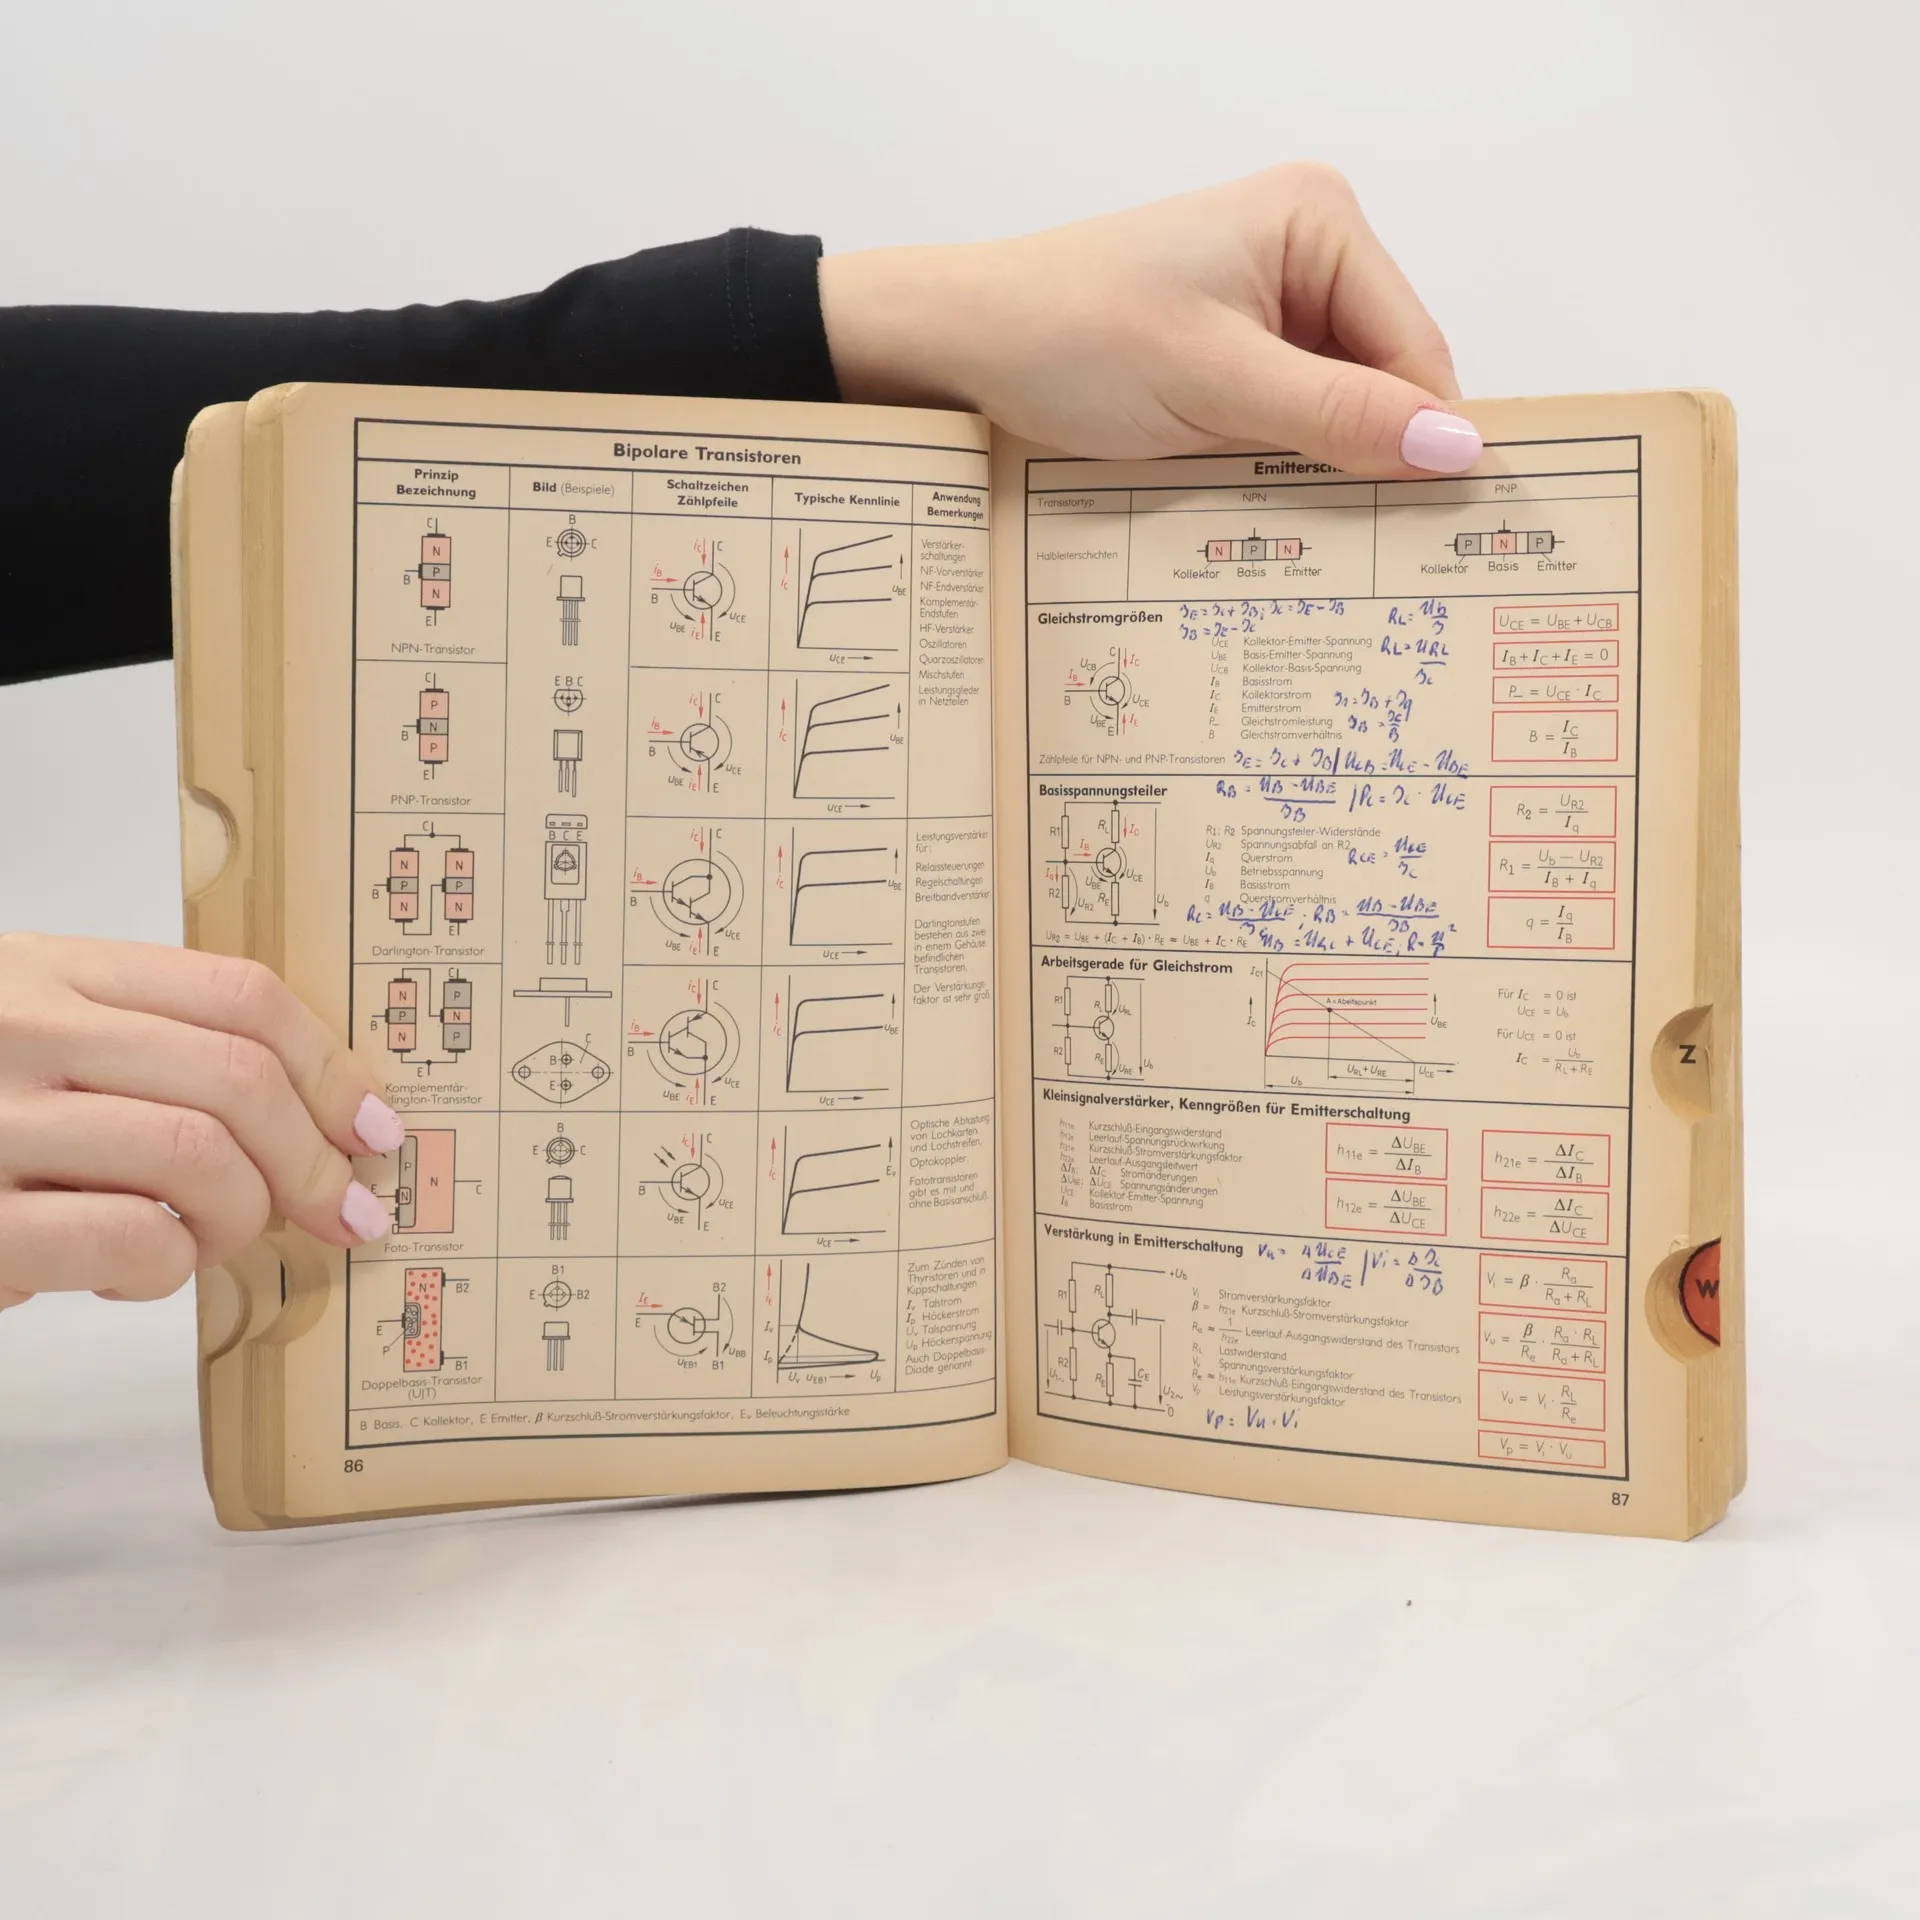 Bipolare Transistoren
Prinzip
Bezeichnung
Bild (Beispiele)
Schaltzeichen
Zählpfeile
Typische Kennlinie
Anwendung
Bemerkungen
NPN-Transistor
Verstärker-
schaltungen
NF-Vorverstärker
NF-Endverstärker
Komplementär-
Endstufen
HF-Verstärker
Oszillatoren
Quarzoszillatoren
Mischstufen
Leistungsglieder
in Netzteilen
PNP-Transistor
Darlington-Transistor
Leistungsverstärker
für:
Relaissteuerungen
Regelschaltungen
Breitbandverstärker
Darlingtonstufen
bestehen aus zwei
in einem Gehäuse
befindlichen
Transistoren.
Der Verstärkungs-
faktor ist sehr groß
Komplementär-
lington-Transistor
Foto-Transistor
Optische Abtastung
von Lochkarten
und Lochstreifen,
Optokoppler.
Fototransistoren
gibt es mit und
ohne Basisanschluß.
Doppelbasis-Transistor
(UJT)
Zum Zünden von
Thyristoren und in
Kippschaltungen
Iv Talstrom
Ip Höckerstrom
Uv Talspannung
Up Höckerspannung
Auch Doppelbasis-
Diode genannt
B Basis, C Kollektor, E Emitter, β Kurzschluß-Stromverstärkungsfaktor, Ev Beleuchtungsstärke
86
Emittersch
Transistortyp
NPN
PNP
Halbleiterschichten
N P N
Kollektor Basis Emitter
P N P
Kollektor Basis Emitter
Gleichstromgrößen
IE = IC + IB; IC = IE - IB
IB = IE - IC
RL = Ub/I
RL = URL/IC
UCE Kollektor-Emitter-Spannung
UBE Basis-Emitter-Spannung
UCB Kollektor-Basis-Spannung
IB Basisstrom
IC Kollektorstrom
IE Emitterstrom
P_ Gleichstromleistung
B Gleichstromverhältnis
I1 = IB + Iq
IB = IC/B
UCE = UBE + UCB
IB + IC + IE = 0
P_ = UCE · IC
B = IC/IB
Zählpfeile für NPN- und PNP-Transistoren
IE = IC + IB / UCB = UCE - UBE
Basisspannungsteiler
RB = UB - UBE/IB / PC = IC · UCE
R1; R2 Spannungsteiler-Widerstände
UR2 Spannungsabfall an R2
Iq Querstrom
Ub Betriebsspannung
IB Basisstrom
q Querstromverhältnis
RCE = UCE/IC
RC = UB - UCE/IC; RB = UB - UBE/IB
UR2 = UBE + (IC + IB) · RE ≈ UBE + IC · RE
UB = URC + UCE; R = U²/P
R2 = UR2/Iq
R1 = Ub − UR2/IB + Iq
q = Iq/IB
Arbeitsgerade für Gleichstrom
A = Arbeitspunkt
URL + URE
Für IC = 0 ist
UCE = Ub
Für UCE = 0 ist
IC = Ub/RL + RE
Kleinsignalverstärker, Kenngrößen für Emitterschaltung
h11e Kurzschluß-Eingangswiderstand
h12e Leerlauf-Spannungsrückwirkung
h21e Kurzschluß-Stromverstärkungsfaktor
h22e Leerlauf-Ausgangsleitwert
ΔIB; ΔIC Stromänderungen
ΔUBE; ΔUCE Spannungsänderungen
UCE Kollektor-Emitter-Spannung
IB Basisstrom
h11e = ΔUBE/ΔIB
h21e = ΔIC/ΔIB
h12e = ΔUBE/ΔUCE
h22e = ΔIC/ΔUCE
Verstärkung in Emitterschaltung
Vu = ΔUCE/ΔUBE / Vi = ΔIC/ΔIB
Vi Stromverstärkungsfaktor
β = h21e Kurzschluß-Stromverstärkungsfaktor
Ra ≈ 1/h22e Leerlauf-Ausgangswiderstand des Transistors
RL Lastwiderstand
Vu Spannungsverstärkungsfaktor
Re ≈ h11e Kurzschluß-Eingangswiderstand des Transistors
Vp Leistungsverstärkungsfaktor
Vp = Vu · Vi
Vi = β · Ra/Ra + RL
Vu = β/Re · Ra · RL/Ra + RL
Vu = Vi · RL/Re
Vp = Vi · Vu
87
Z
W